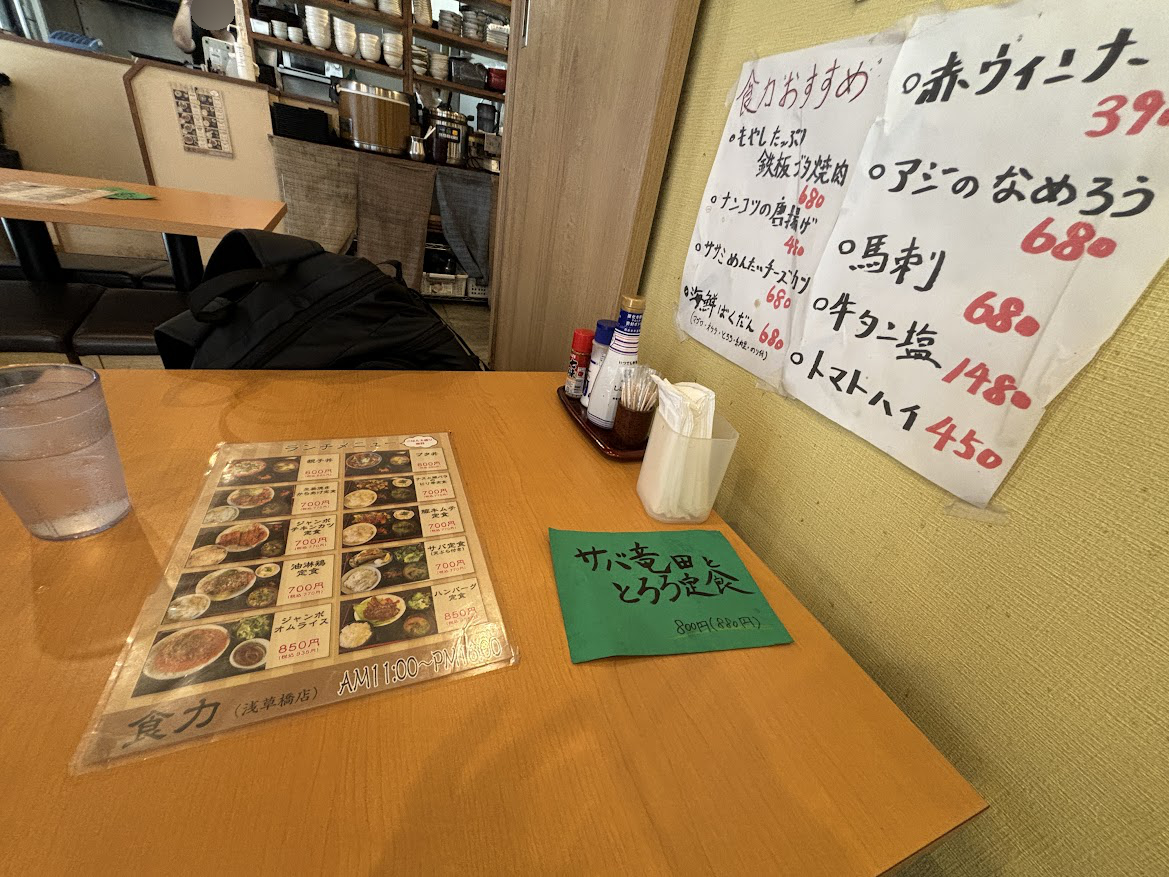 食力おすすめ
○もやしたっぷり
鉄板ブタ焼肉
680
○ナンコツの唐揚げ
480
○ササミめんたいチーズカツ
680
○海鮮ばくだん
680
○赤ウィンナー
390
○アジのなめろう
680
○馬刺
680
○牛タン塩
1480
○トマトハイ
450
ランチメニュー
親子丼
600円
ブタ丼
600円
700円
700円
ジャンボ
チキンカツ
定食
700円
(税込770円)
豚キムチ
定食
700円
油淋鶏
定食
700円
(税込770円)
サバ定食
700円
ジャンボ
オムライス
850円
(税込935円)
ハンバーグ
定食
850円
AM11:00~PM16:00
食力(浅草橋店)
サバ竜田と
とろろ定食
800円(880円)